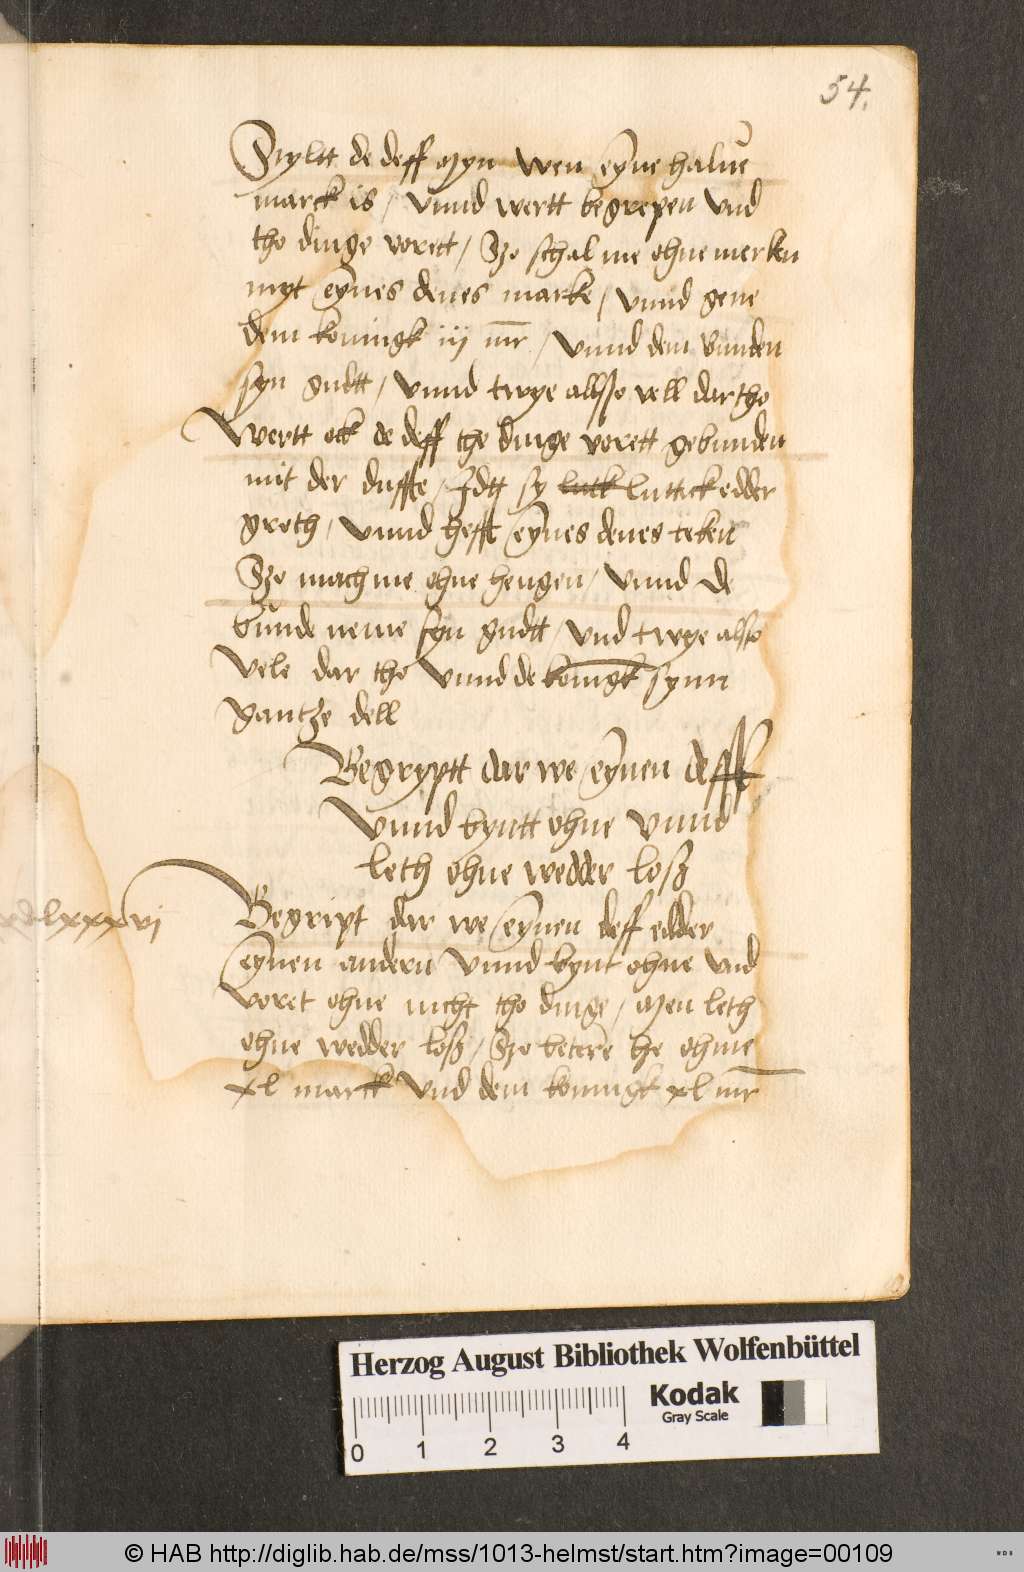 54.
Styltt de deff myn wen eyne halue
marck is / vnnd wertt begrepen vnd
tho dinge vorett / Szo schal me ohne merken
myt eynes deues marke / vnnd geue
dem koningk iij mr / vnnd dem bunden
syn gudtt / vnnd twye allsso vell dartho
Wertt ock de deff tho dinge vorett gebunden
mit der duffte / Jdtt sy luttick edder
groth / vnnd hefft eynes deues teken
Szo mach me ohne hengen / vnnd de
bunde neme syn gudtt / vnd twye allso
vele dar tho vnnd de koningk synn
gantze dell
Begryptt dar we eynen defft
vnnd byntt ohne vnnd
leth ohne wedder losz
lxxxvi
Begript dar we eynen deff edder
eynen andern vnnd bynt ohne vnd
voret ohne nicht tho dinge / men leth
ohne wedder losz / Szo betere he ohme
xl marck vnd dem koningk xl mr
Herzog August Bibliothek Wolfenbüttel
Kodak
Gray Scale
0 1 2 3 4
© HAB http://diglib.hab.de/mss/1013-helmst/start.htm?image=00109